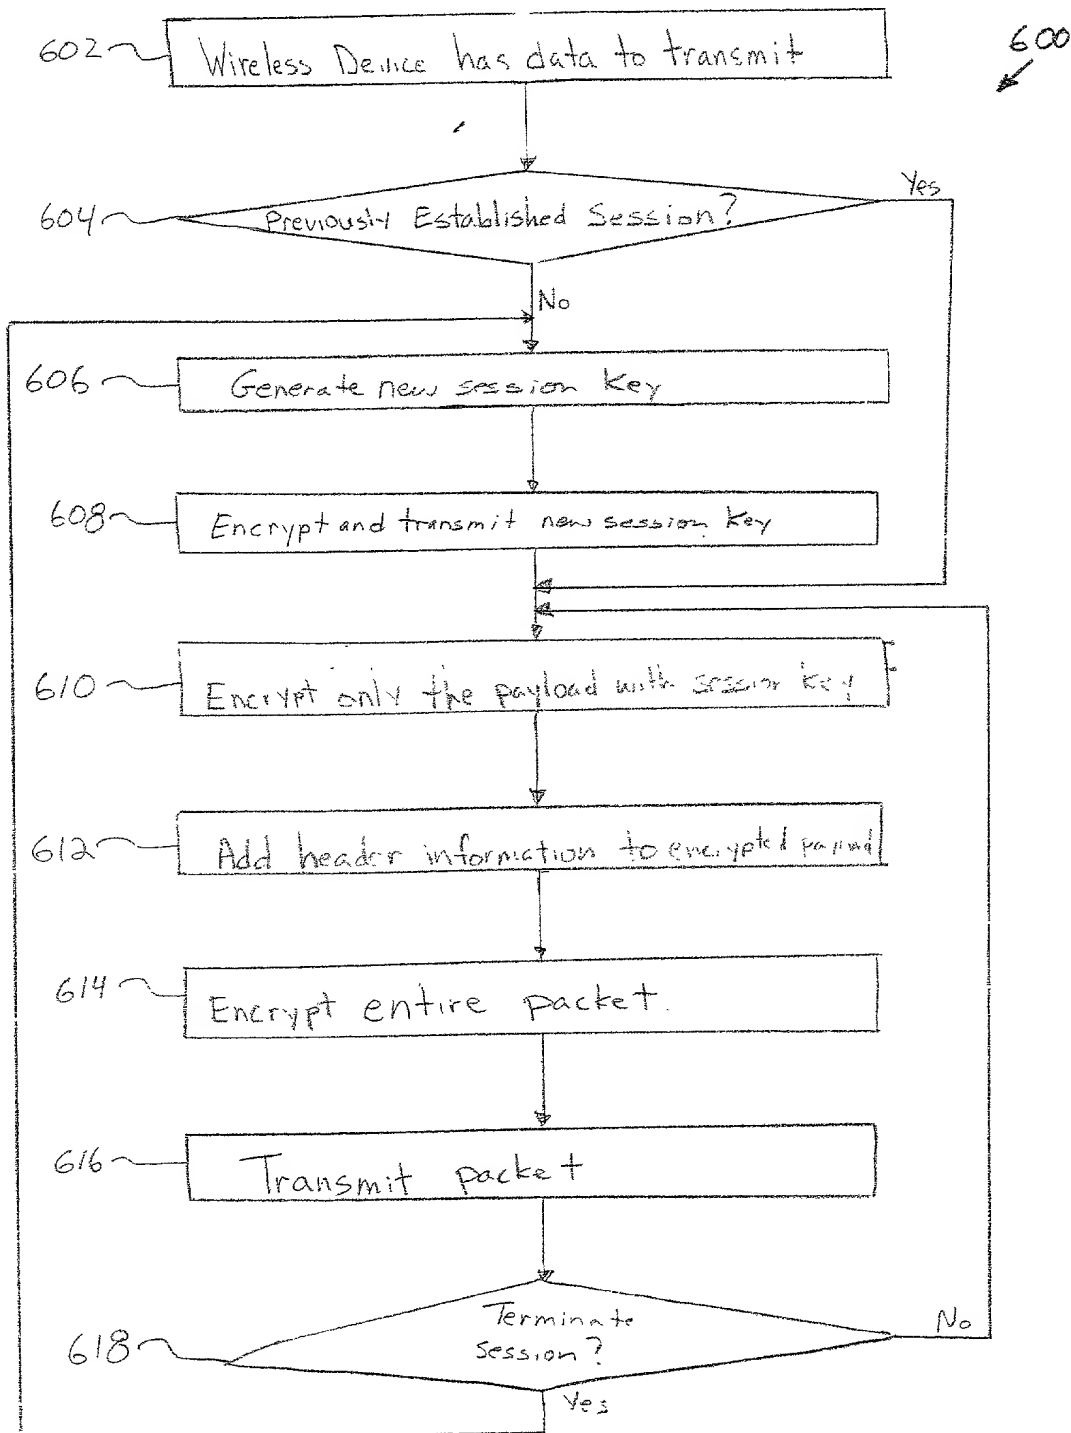 600
602 Wireless Device has data to transmit
604 Previously Established Session?
Yes
No
606 Generate new session key
608 Encrypt and transmit new session key
610 Encrypt only the payload with session key
612 Add header information to encrypted payload
614 Encrypt entire packet.
616 Transmit packet
618 Terminate
session?
No
Yes